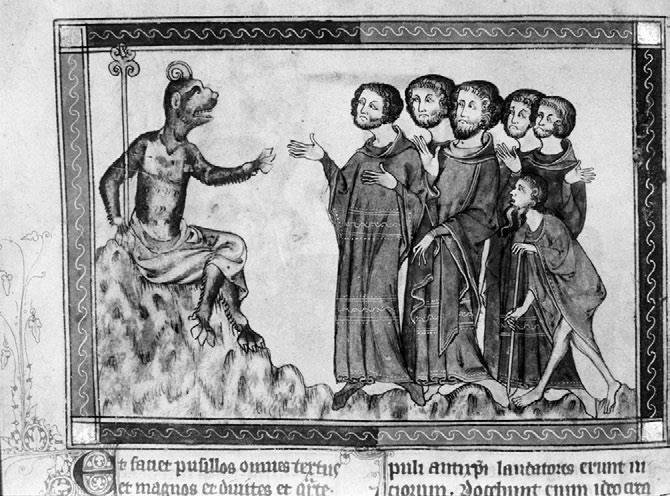 Et faciet pusillos omnes textus
et magnos et diuites et
puli antixpi laudatores erunt ui
ciorum. Docebunt enim ideo crea